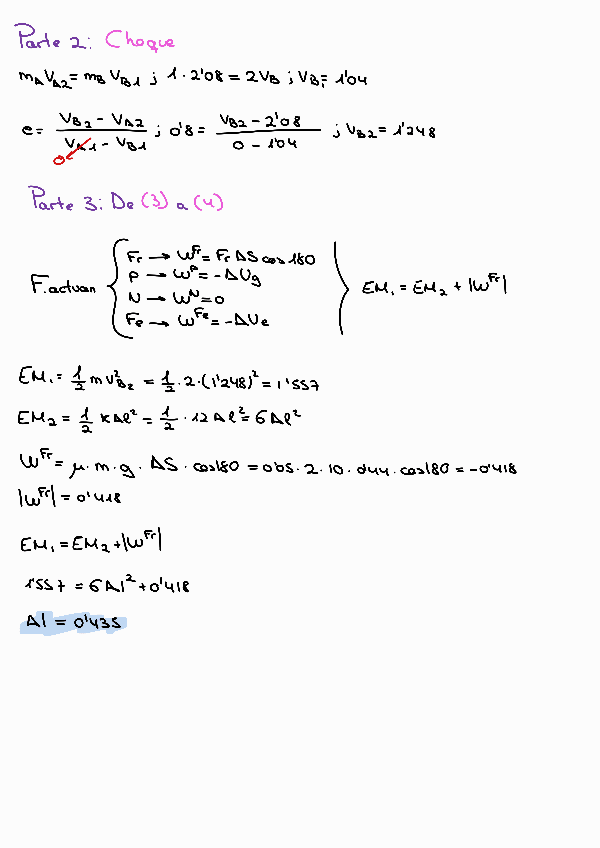 Parte 2: Choque
mA VA2 = mB VB1 ; 1 · 2'08 = 2VB ; VB1 = 1'04
e = (VB2 - VA2) / (VA1 - VB1) ; 0'8 = (VB2 - 2'08) / (0 - 1'04) ; VB2 = 1'248
0
Parte 3: De (3) a (4)
F. actuan
Fr → W^Fr = Fr ΔS cos 180
P → W^P = -ΔUg
N → W^N = 0
Fe → W^Fe = -ΔUe
EM1 = EM2 + |W^Fr|
EM1 = 1/2 m V²B2 = 1/2 · 2 · (1'248)² = 1'557
EM2 = 1/2 K Δl² = 1/2 · 12 Δl² = 6 Δl²
W^Fr = μ · m · g · ΔS · cos180 = 0'05 · 2 · 10 · 0'44 · cos180 = -0'418
|W^Fr| = 0'418
EM1 = EM2 + |W^Fr|
1'557 = 6 Δl² + 0'418
Δl = 0'435